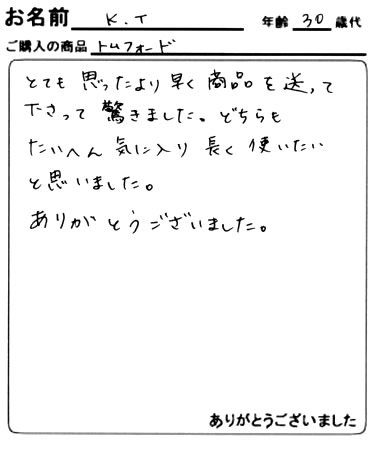 お名前 K.T 年齢 30 歳代
ご購入の商品 トムフォード
とても思ったより早く商品を送って
下さって驚きました。どちらも
たいへん気に入り長く使いたい
と思いました。
ありがとうございました。
ありがとうございました